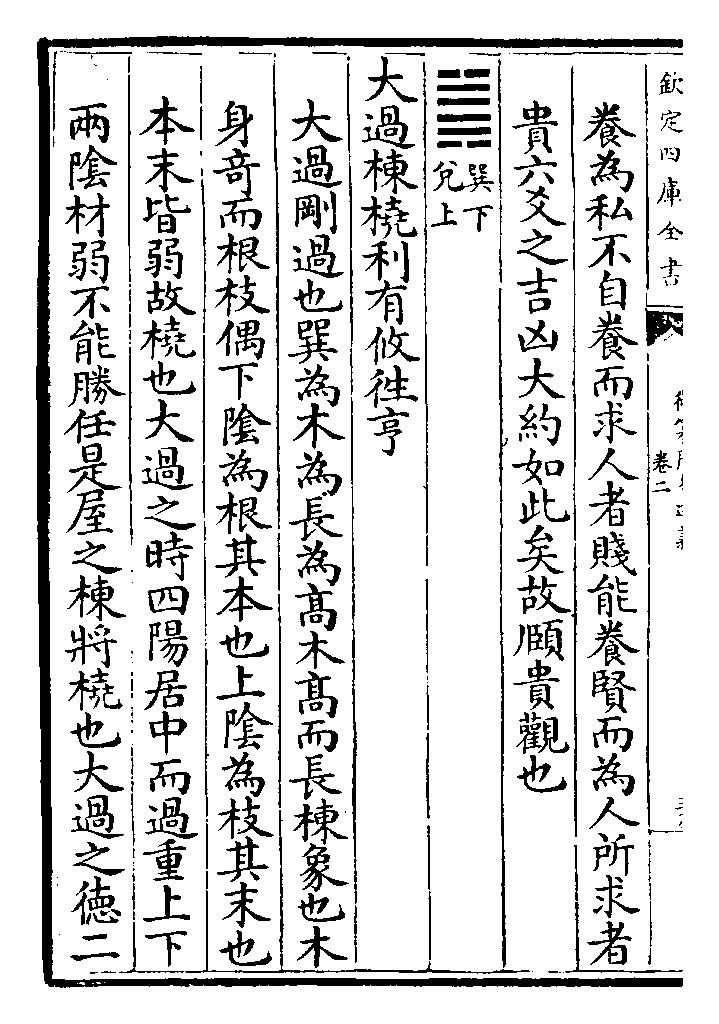 欽定四庫全書
卷二
養為私不自養而求人者賤能養賢而為人所求者
貴六爻之吉凶大約如此矣故頤貴觀也
䷛
巽下
兌上
大過棟橈利有攸徃亨
大過剛過也巽為木為長為髙木髙而長棟象也木
身竒而根枝偶下陰為根其本也上陰為枝其末也
本末皆弱故橈也大過之時四陽居中而過重上下
兩陰材弱不能勝任是屋之棟將橈也大過之徳二